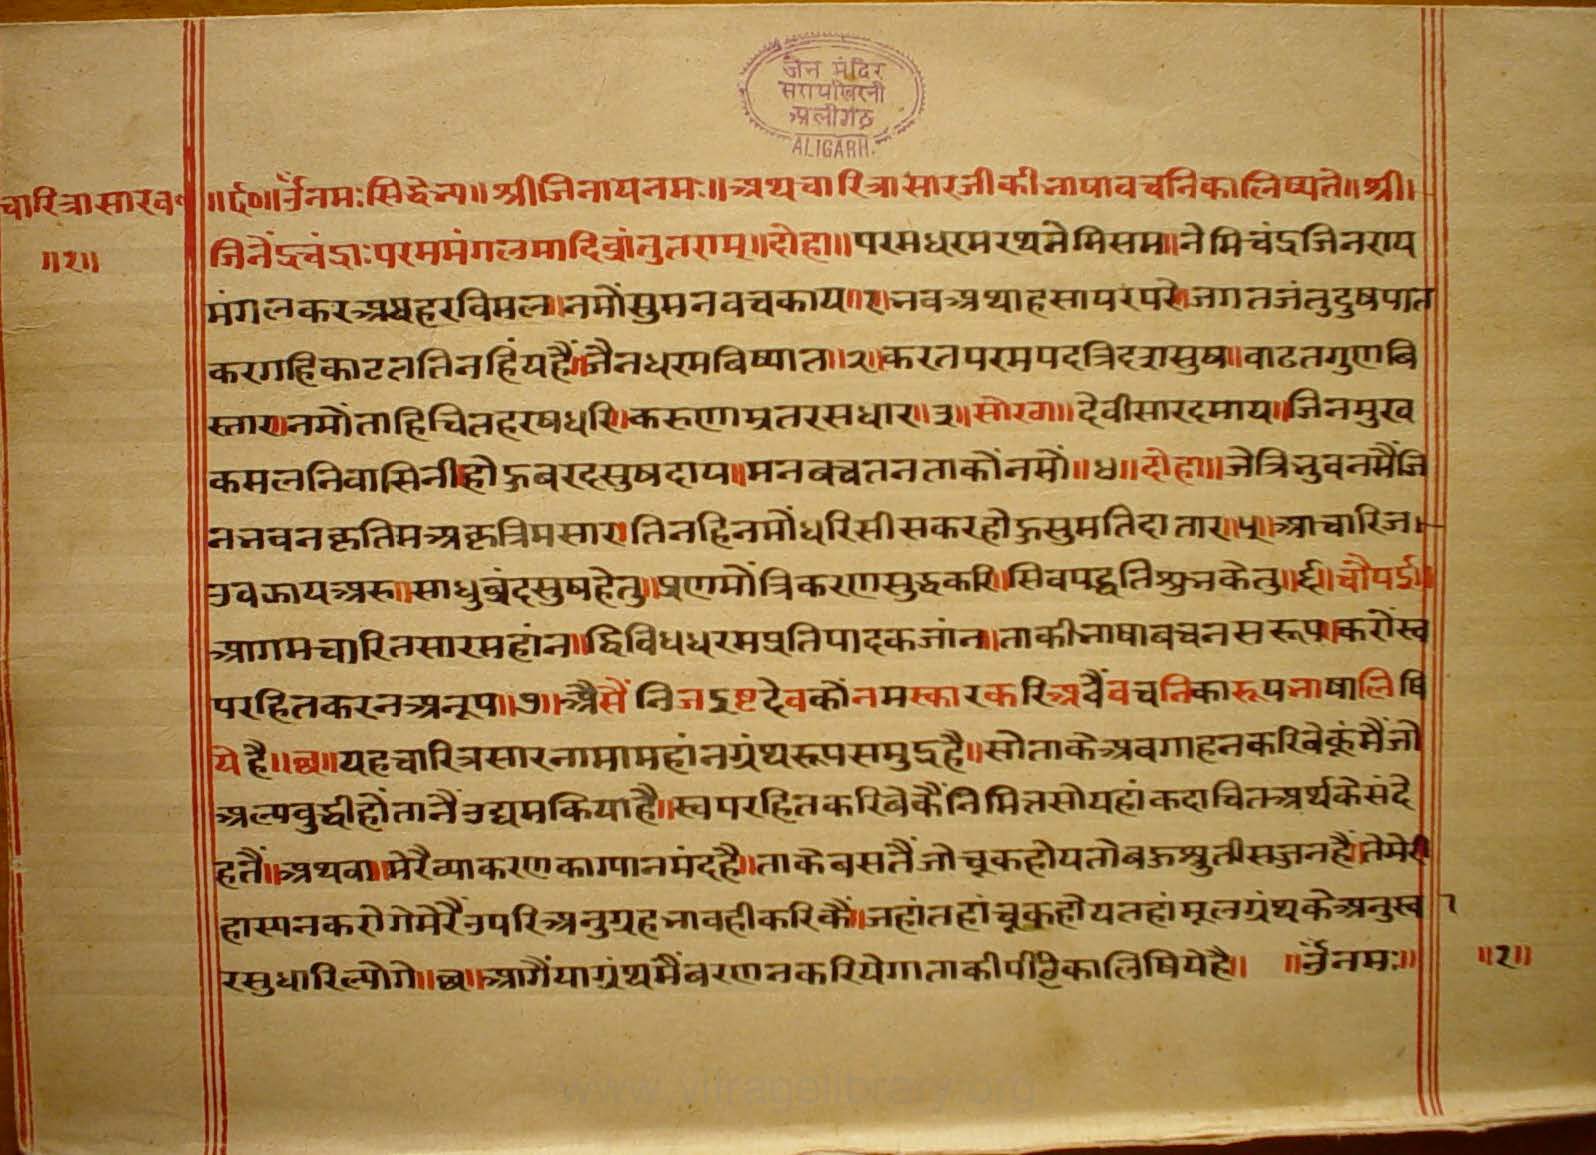 जैन मंदिर
सरायखिरनी
अलीगंढ
ALIGARH.
चारित्रासारव॰
॥१॥
॥ॐनमःसिद्धेभ्य॥श्रीजिनायनमः॥अथचारित्रासारजीकीभाषावचनिकालिष्यते॥श्री।
जिनेंद्रचंद्राःपरममंगलमादिशंतुतराम्॥दोहा॥परमधरमरथनेमिसम॥नेमिचंद्रजिनराय
मंगलकरअघहरविमल।नमोंसुमनवचकाय॥१॥भवअथाहसापरपरे।जगतजंतुदुषपात
करगहिकाटततिनहिंयहै॥जैनधरमविष्यात॥२॥करतपरमपदत्रिदशसुष॥वाढतगुणबि
स्तार॥नमोंताहिचितहरषधरि।करुणाम्रतरसधार॥३॥सोरठा॥देवीसारदमाय॥जिनमुख
कमलनिवासिनी।होऊबरदसुषदाय॥मनबचतनताकोंनमों॥४॥दोहा॥जेत्रिभुवनमैंजि
नभवनकृतिमअकृत्रिमसार।तिनहिनमोंधरिसीसकरहोऊसुमतिदातार॥५॥आचारिज।
उवझायअरु॥साधुब्रंदसुषहेतु॥प्रणमोंत्रिकरणसुद्धकरि।सिवपद्धतिश्रुभकेतु॥६॥चौपई॥
आगमचारितसारमहांन॥द्विविधधरमप्रतिपादकजांन।ताकीभाषाबचनसरूप।करोंस्व
परहितकरनअनूप॥७॥अैसैंनिजइष्टदेवकोंनमस्कारकरिअवैंवचनिकारूपभाषालिषि
येहै॥छ॥यहचारित्रसारनामामहांनग्रंथरूपसमुद्रहै॥सोताकेअवगाहनकरिवेकूंमैंजो
अल्पवुद्धीहोंतानैंउद्यमकियाहै॥स्वपरहितकरिवेकैंनिमित्तसोयहांकदाचितअर्थकेसंदे
हतैं॥अथवा।मेरैव्याकरणकाग्यानमंदहै॥ताकेबसतैंजोचूकहोयतोबऊश्रुतीसज्जनहैं।तेमेरी
हास्यनकरोगेमेरैंउपरिअनुग्रहभावहीकरिकैं।जहांतहांचूकहोयतहांमूलग्रंथकेअनुस्वा
रसुधारिल्योगे॥छ॥आगैंयाग्रंथमैंबरणनकरियेगाताकीपीठिकालिषियेहै॥ ॥ॐनमः॥
॥१॥
www.vitragelibrary.org